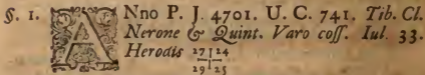 §. 1. ANno P. J. 4701. U. C. 741. Tib. Cl.
Nerone & Quint. Varo coss. Iul. 33.
Herodis 27|24
29|25